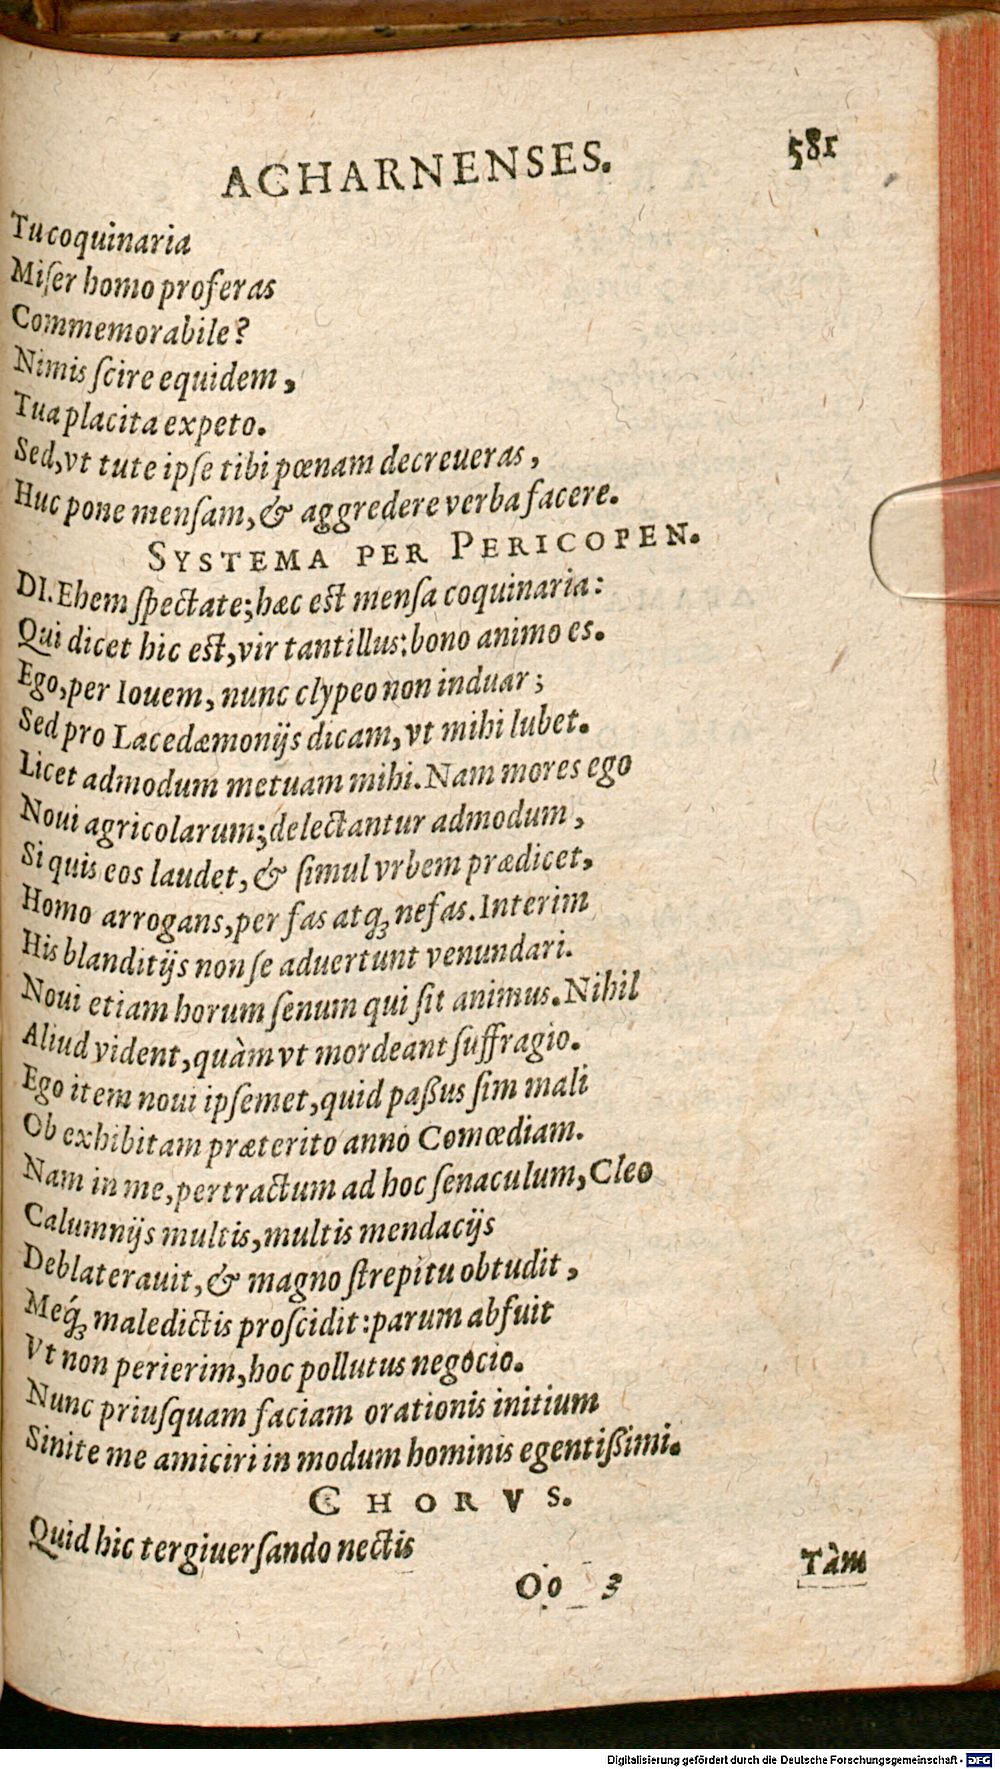 ACHARNENSES. 581
Tu coquinaria
Miſer homo proferas
Commemorabile?
Nimis ſcire equidem,
Tua placita expeto.
Sed, vt tute ipſe tibi pœnam decreueras,
Huc pone menſam, & aggredere verba facere.
SYSTEMA PER PERICOPEN.
DI. Ehem ſpectate; hæc est menſa coquinaria:
Qui dicet hic est, vir tantillus: bono animo es.
Ego, per Iouem, nunc clypeo non induar;
Sed pro Lacedæmonijs dicam, vt mihi lubet.
Licet admodum metuam mihi. Nam mores ego
Noui agricolarum; delectantur admodum,
Si quis eos laudet, & ſimul vrbem prædicet,
Homo arrogans, per fas atq; nefas. Interim
His blanditijs non ſe aduertunt venundari.
Noui etiam horum ſenum qui ſit animus. Nihil
Aliud vident, quàm vt mordeant ſuffragio.
Ego item noui ipſemet, quid paßus ſim mali
Ob exhibitam præterito anno Comœdiam.
Nam in me, pertractum ad hoc ſenaculum, Cleo
Calumnijs multis, multis mendacijs
Deblaterauit, & magno ſtrepitu obtudit,
Meq́; maledictis proſcidit: parum abfuit
Vt non perierim, hoc pollutus negocio.
Nunc priuſquam faciam orationis initium
Sinite me amiciri in modum hominis egentißimi.
CHORVS.
Quid hic tergiuerſando nectis
Oo 3 Tàm
Digitalisierung gefördert durch die Deutsche Forschungsgemeinschaft - DFG